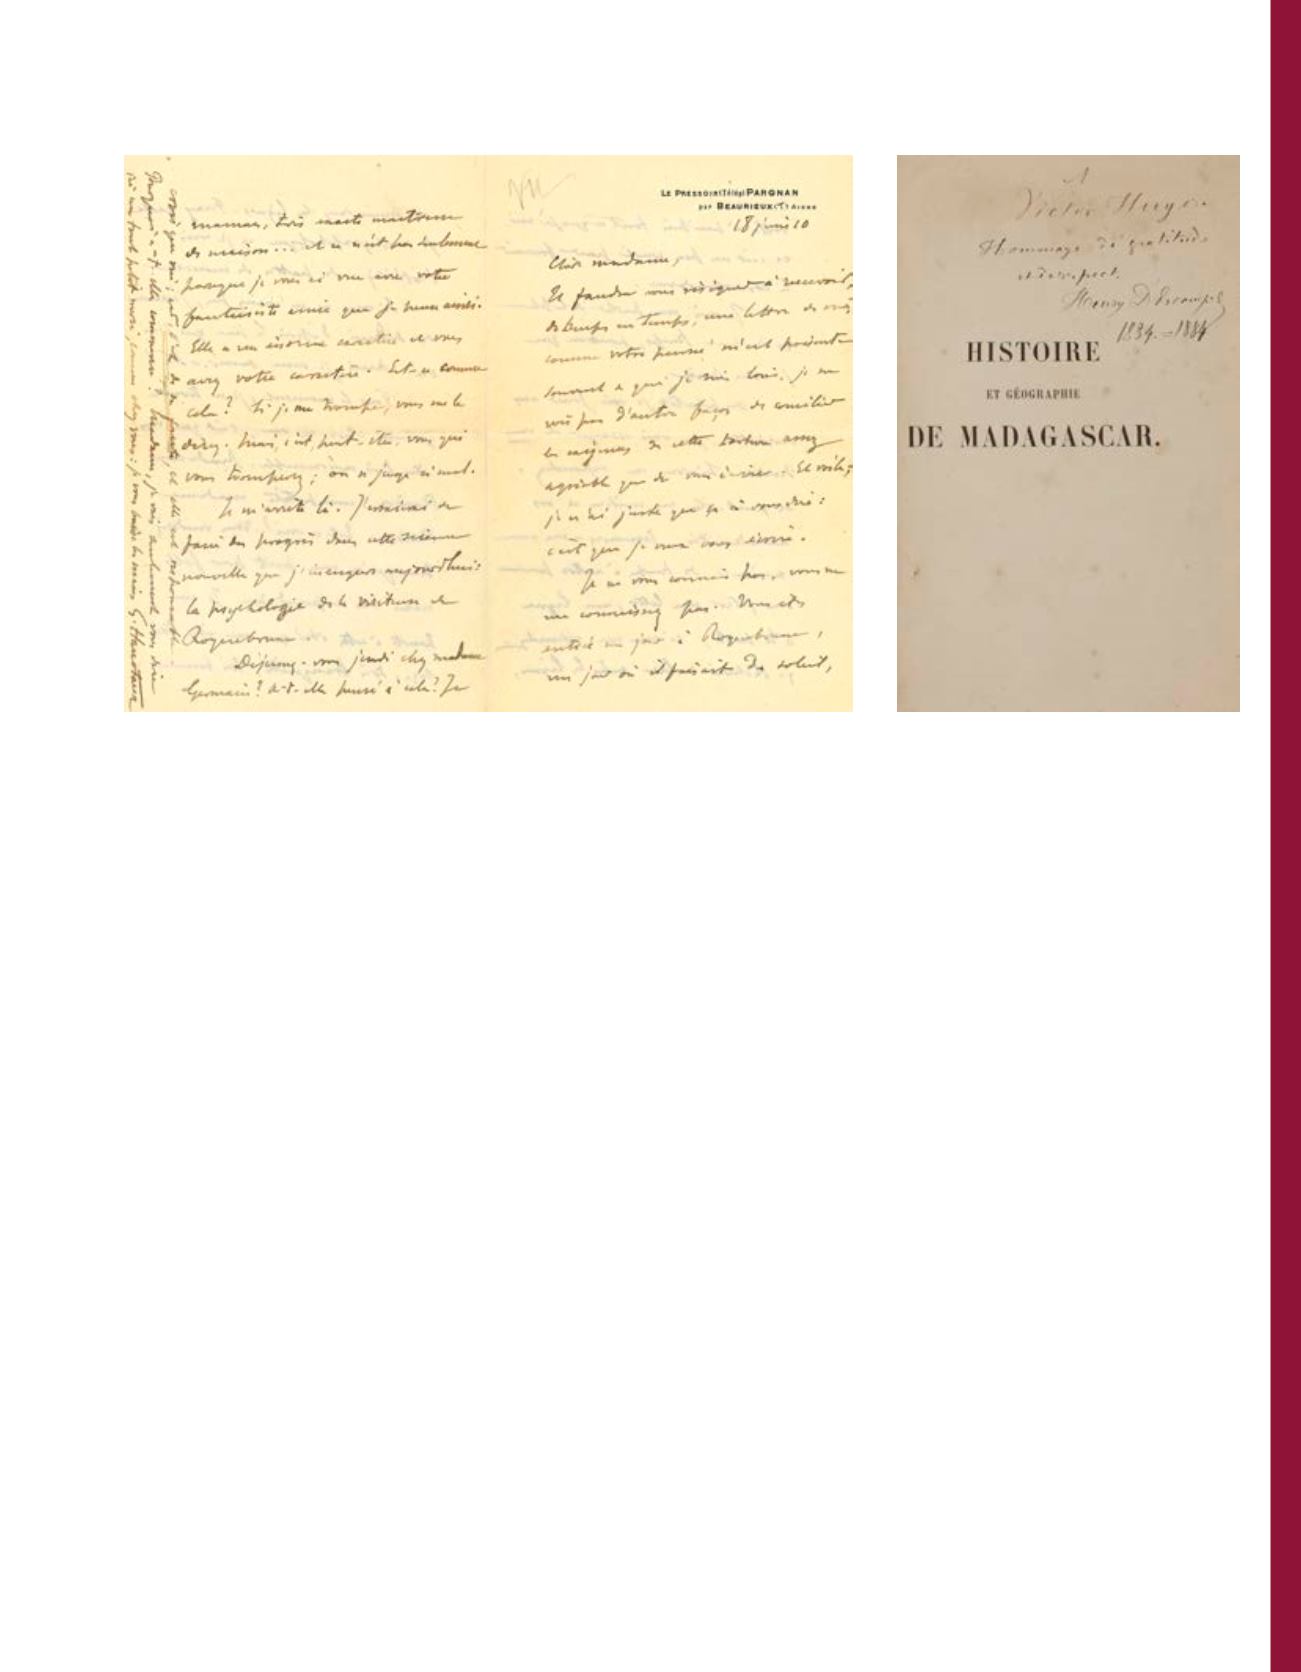 LE PRESSOIR (Télég) PARGNAN
par BEAURIEUX (T) AISNE
18 juin 10
Chère madame,
Il faudra vous résigner à recevoir,
de temps en temps, une lettre de moi
comme votre pensée m'est présente
souvent et que je suis loin, je ne
vois pas d'autre façon de concilier
les exigences de cette torture assez
agréable que de vous écrire. Et voilà;
je n'ai juste que ça à vous dire:
c'est que je veux vous écrire.
Je ne vous connais pas, vous ne
me connaissez pas. Vous êtes
entrée un jour à Roquebrune,
un jour où il faisait du soleil,
maman, trois
de maison... et ce n'est pas seulement
parce que je vous ai vue avec votre
fantaisiste amie que je pense ainsi.
Elle a un énorme caractère et vous
avez votre caractère. Est-ce comme
cela? Si je me trompe, vous me le
direz. Mais c'est, peut-être, vous qui
vous tromperez; on se juge si mal.
Je m'arrête là. J'essaierai de
faire des progrès dans cette science
nouvelle que j'inaugure aujourd'hui:
la psychologie de la visiteuse de
Roquebrune.
Déjeunez-vous jeudi chez madame
Germain? a-t-elle pensé à cela? Je
crois que oui; de sa faute, et elle est responsable
Pourquoi a-t-elle commencé? Madame, je vais seulement vous dire
un tout petit merci, comme chez vous: je vous baise les mains G. Hanotaux
A
Victor Hugo.
Hommage de gratitude
et de respect.
Henry D'Escamps
1834.-1884
HISTOIRE
ET GÉOGRAPHIE
DE MADAGASCAR.